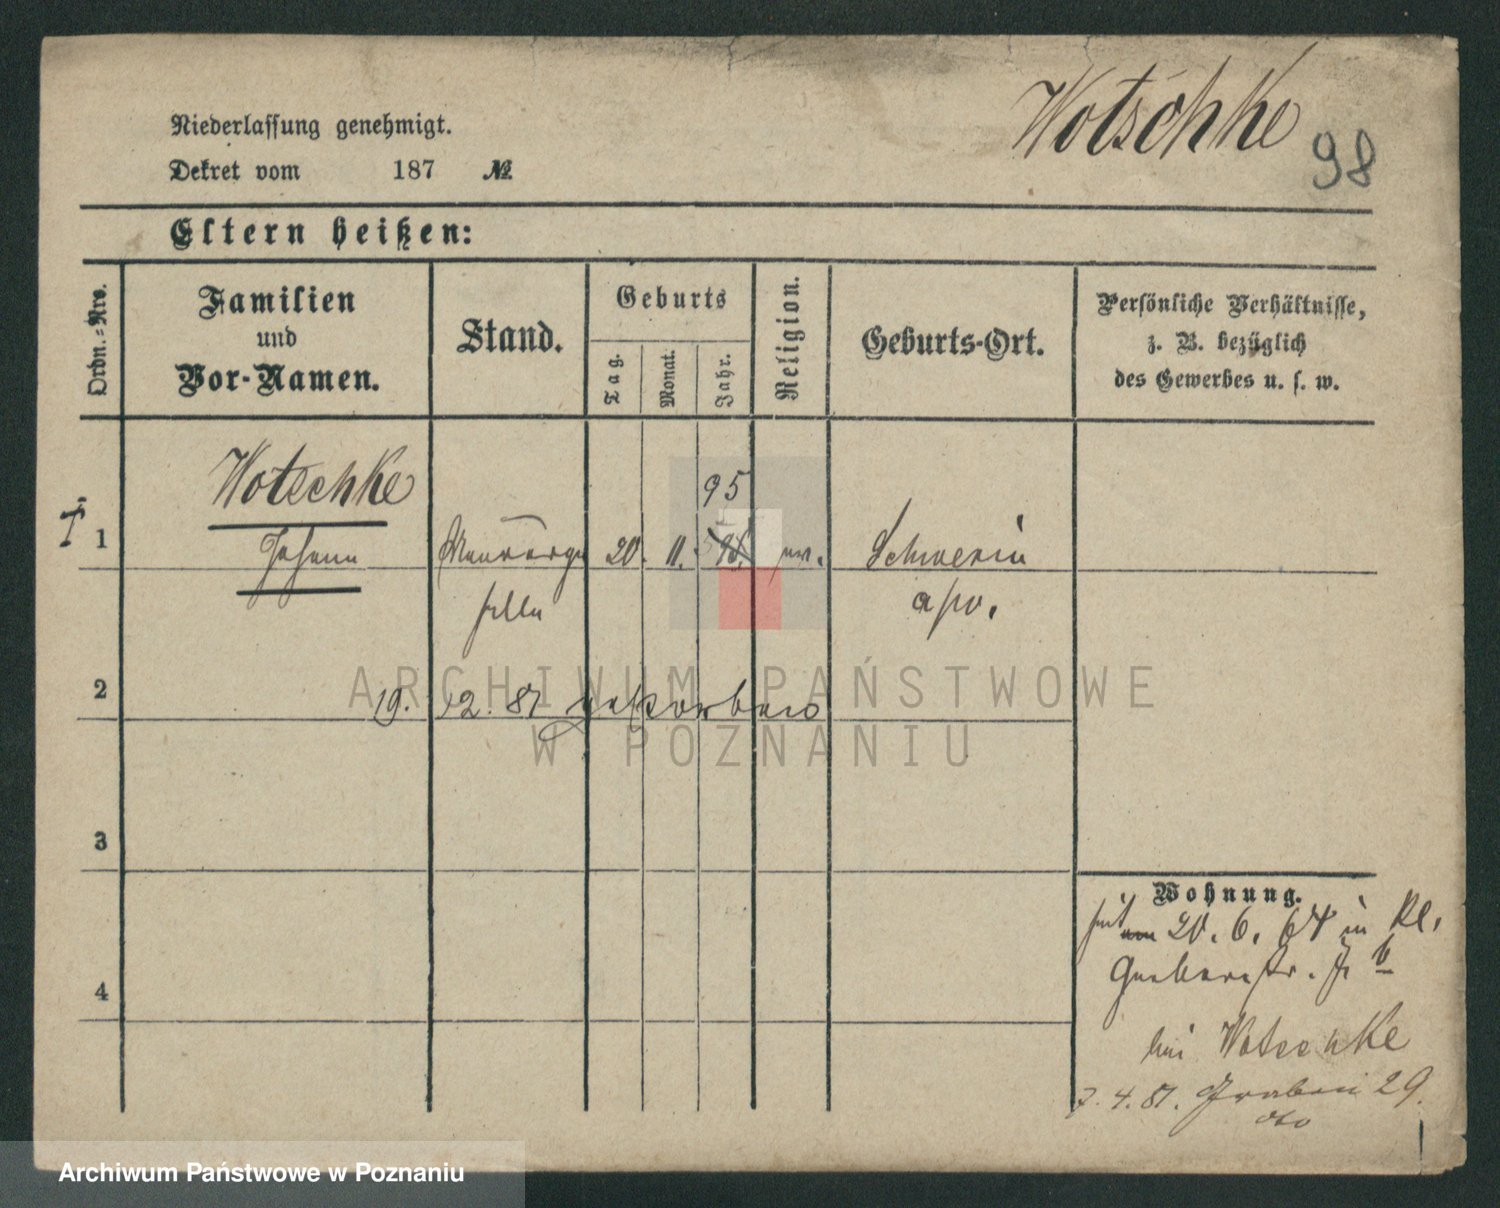 Wotschke
98
Niederlassung genehmigt.
Dekret vom 187 №
Eltern heißen:
Ordn.-Nro.
Familien
und
Vor-Namen.
Stand.
Geburts
Tag.
Monat.
Jahr.
Religion.
Geburts-Ort.
Persönliche Verhältnisse,
z. B. bezüglich
des Gewerbes u. s. w.
Wotschke
95
1 Johann Maurerge 20. 11. ev. Schwerin
selle a/w.
2
19. 12. 81 gestorben
3
4
Wohnung.
seit 20. 6. 67 in Kl.
Gerberstr. 7 b
bei Wotschke
7. 4. 81. Graben 29.
ARCHIWUM PAŃSTWOWE
W POZNANIU
Archiwum Państwowe w Poznaniu